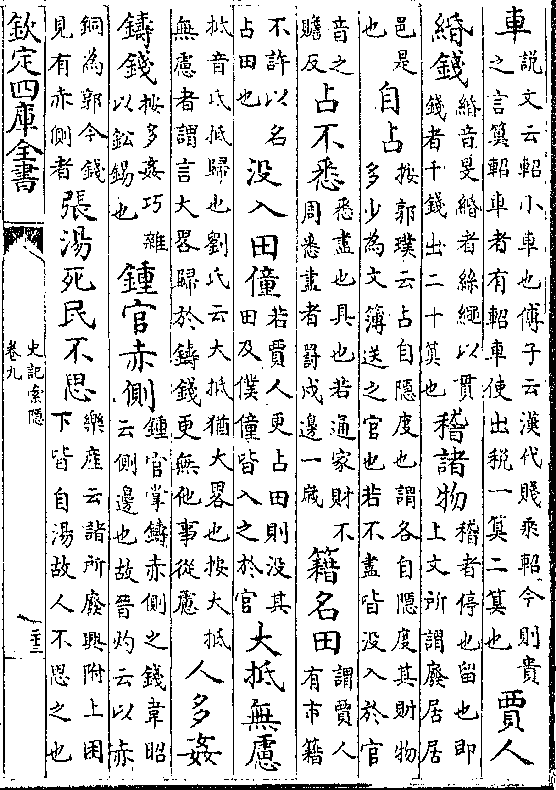 車說文云軺小車也傅子云漢代賤乘軺今則貴之言筭軺車者有軺車使出稅一筭二筭也賈人
緡錢緡音旻緡者絲繩以貫錢者千錢出二十筭也稽諸物稽者停也留也即上文所謂廢居居
邑是也自占按郭璞云占自隱度也謂各自隱度其財物多少為文簿送之官也若不盡皆没入於官
音之贍反占不悉悉盡也具也若通家財不周悉盡者罰戍邊一歲籍名田謂賈人有市籍
不許以名占田也没入田僮若賈人更占田則没其田及僕僮皆入之於官大抵無慮
抵音氏抵歸也劉氏云大抵猶大畧也按大抵無慮者謂言大畧歸於鑄錢更無他事從慮人多姦
鑄錢按多姦巧雜以鈆錫也鍾官赤側鍾官掌鑄赤側之錢韋昭云側邊也故晉灼云以赤
銅為郭今錢見有赤側者張湯死民不思樂産云諸所廢興附上困下皆自湯故人不思之也
欽定四庫全書
史記索隱
卷九